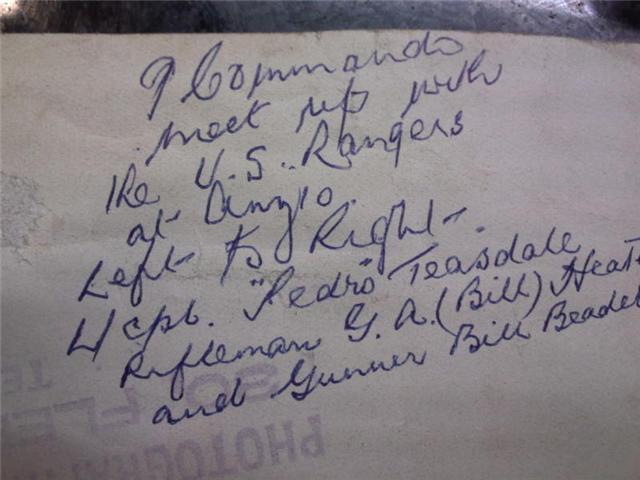 9 Commando
meet up with
the U.S. Rangers
at Anzio.
Left to Right.
L/cpl. "Pedro" Teasdale
Rifleman G. A. (Bill) Heath
and Gunner Bill Beadel
PHOTOGRA